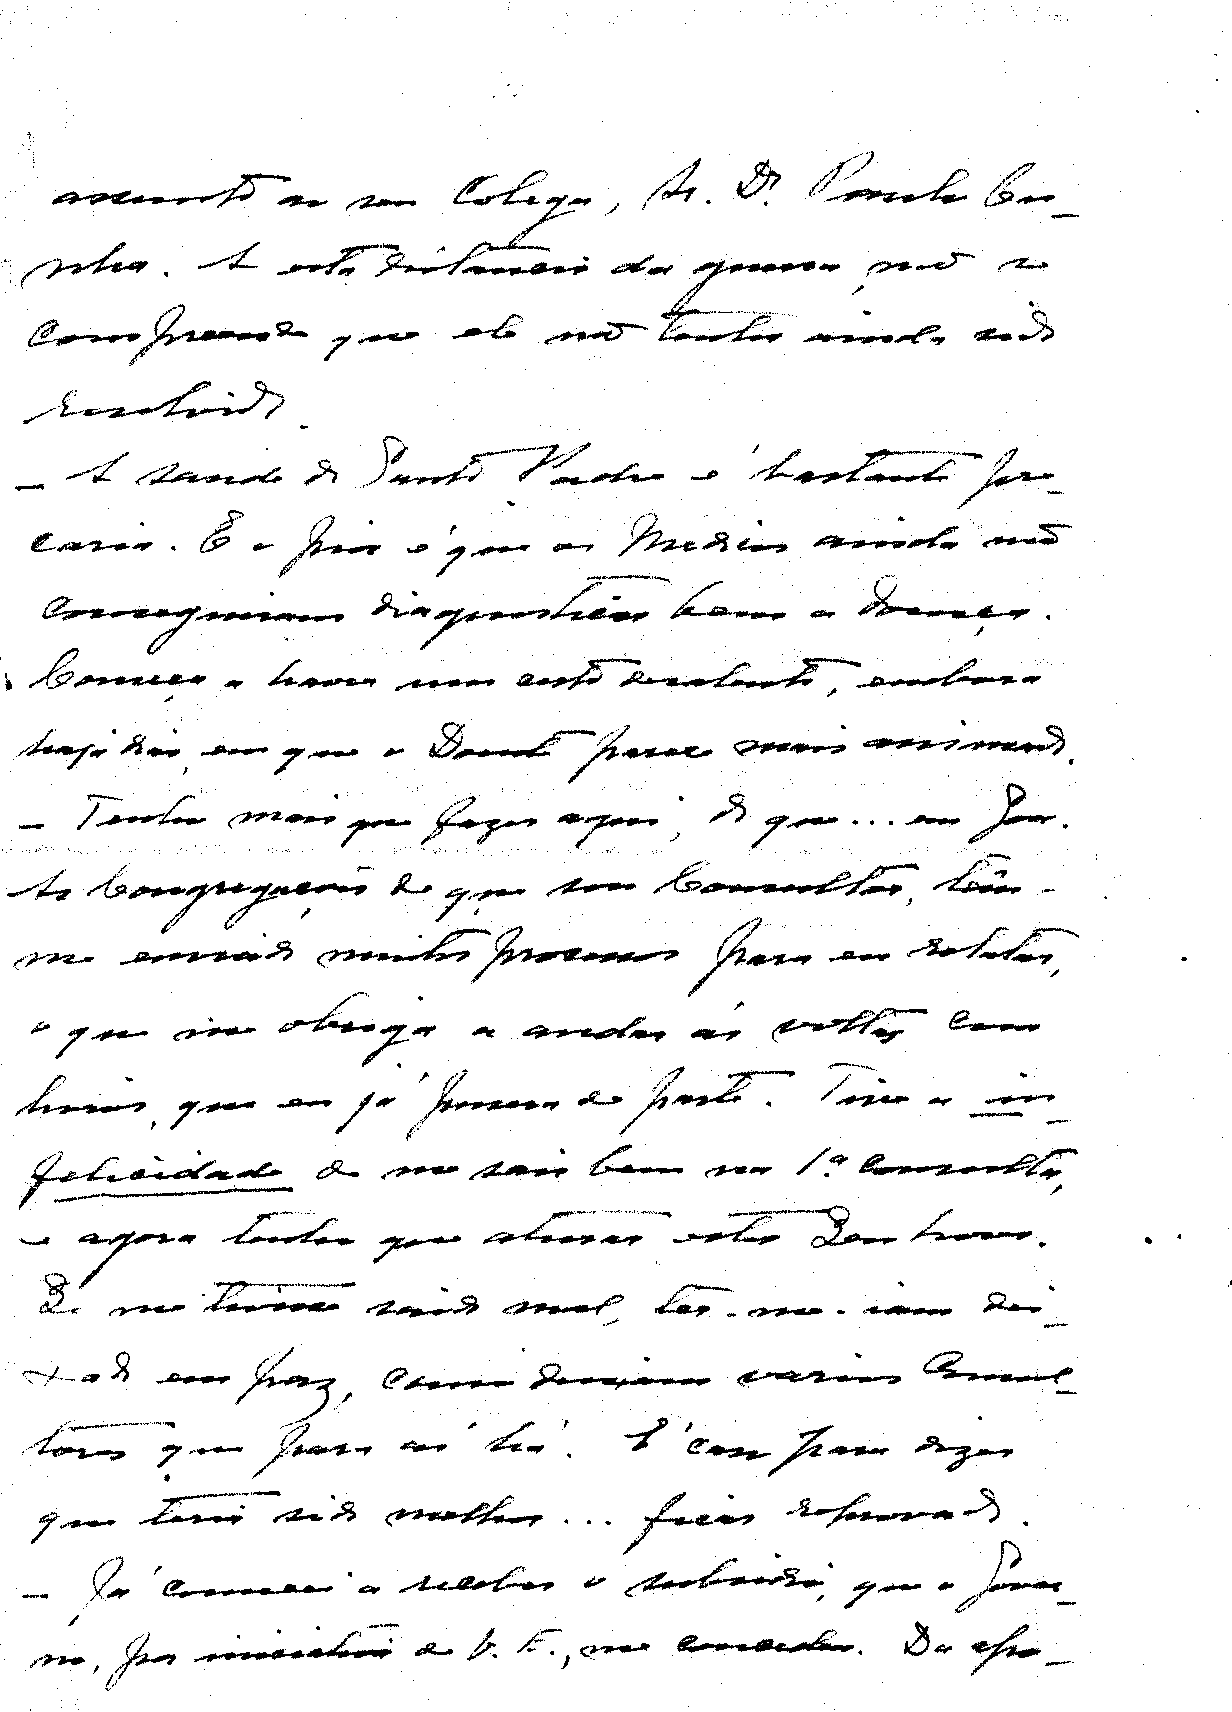 assunto ao seu Colega, Sr. Dr. Paulo Cu-
nha. A esta distancia da guerra, não se
compreende que ele não tenha ainda sido
resolvido.
- A saude do Santo Padre é bastante pre-
caria. E o pior é que os Medicos ainda não
conseguiram diagnosticar bem a doença.
Começa a haver um certo desalento, embora
haja dias, em que o Doente parece mais animado.
- Tenho mais que fazer aqui, do que... em Goa.
As Congregações de que sou Consultor, têm-
me enviado muitos processos para eu relatar,
o que me obriga a andar ás voltas com
livros, que eu já puzera de parte. Tive a in-
felicidade de me sair bem na 1.ª consulta,
e agora tenho que aturar estes Senhores.
Se me tivesse saido mal, ter-me-iam dei-
xado em paz, como deixam varios Consul-
tores que para aí há. É caso para dizer
que teria sido melhor... ficar reprovado.
- Já comecei a receber o subsidio, que o Gover-
no, por iniciativa de V. E., me concedeu. Da